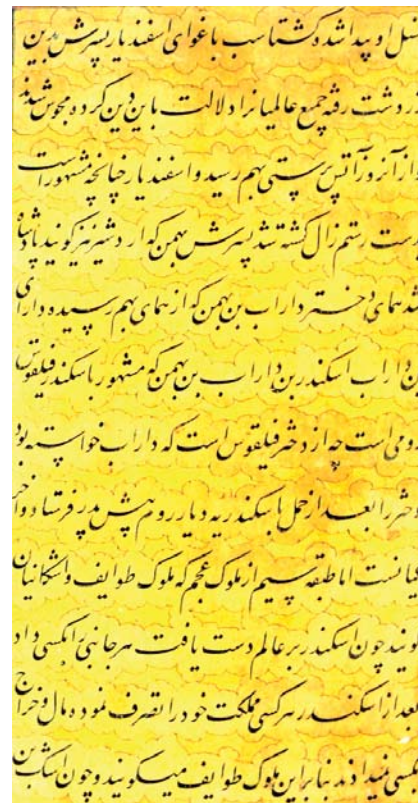 نسل او پیدا شده گشتاسب باغوای اسفندیار پسرش بدین
زردشت رفته جمیع عالمیانرا دلالت باین دین کرده مجوس شدند
و از آنروز آتش پرستی بهم رسید و اسفندیار چنانچه مشهور است
بدست رستم زال کشته شد پسرش بهمن که اردشیر نیز گویند پادشاه
شد همای دختر داراب بن بهمن که از همای بهم رسیده دارای
بن داراب اسکندر بن داراب بن بهمن که مشهور باسکندر فیلقوس
رومی است چه از دختر فیلقوس است که داراب خواسته بود
دختر را بعد از حمل باسکندر به دیار روم پیش پدر فرستاد و آخر
کیانست اما طبقه سیم از ملوک عجم که ملوک طوایف و اشکانیان
گویند چون اسکندر بر عالم دست یافت هر جانبی بکسی داد
بعد از اسکندر هر کسی مملکت خود را تصرف نموده مال و خراج
بکسی نمیدادند بنابراین ملوک طوایف میگویند و چون اشک بن